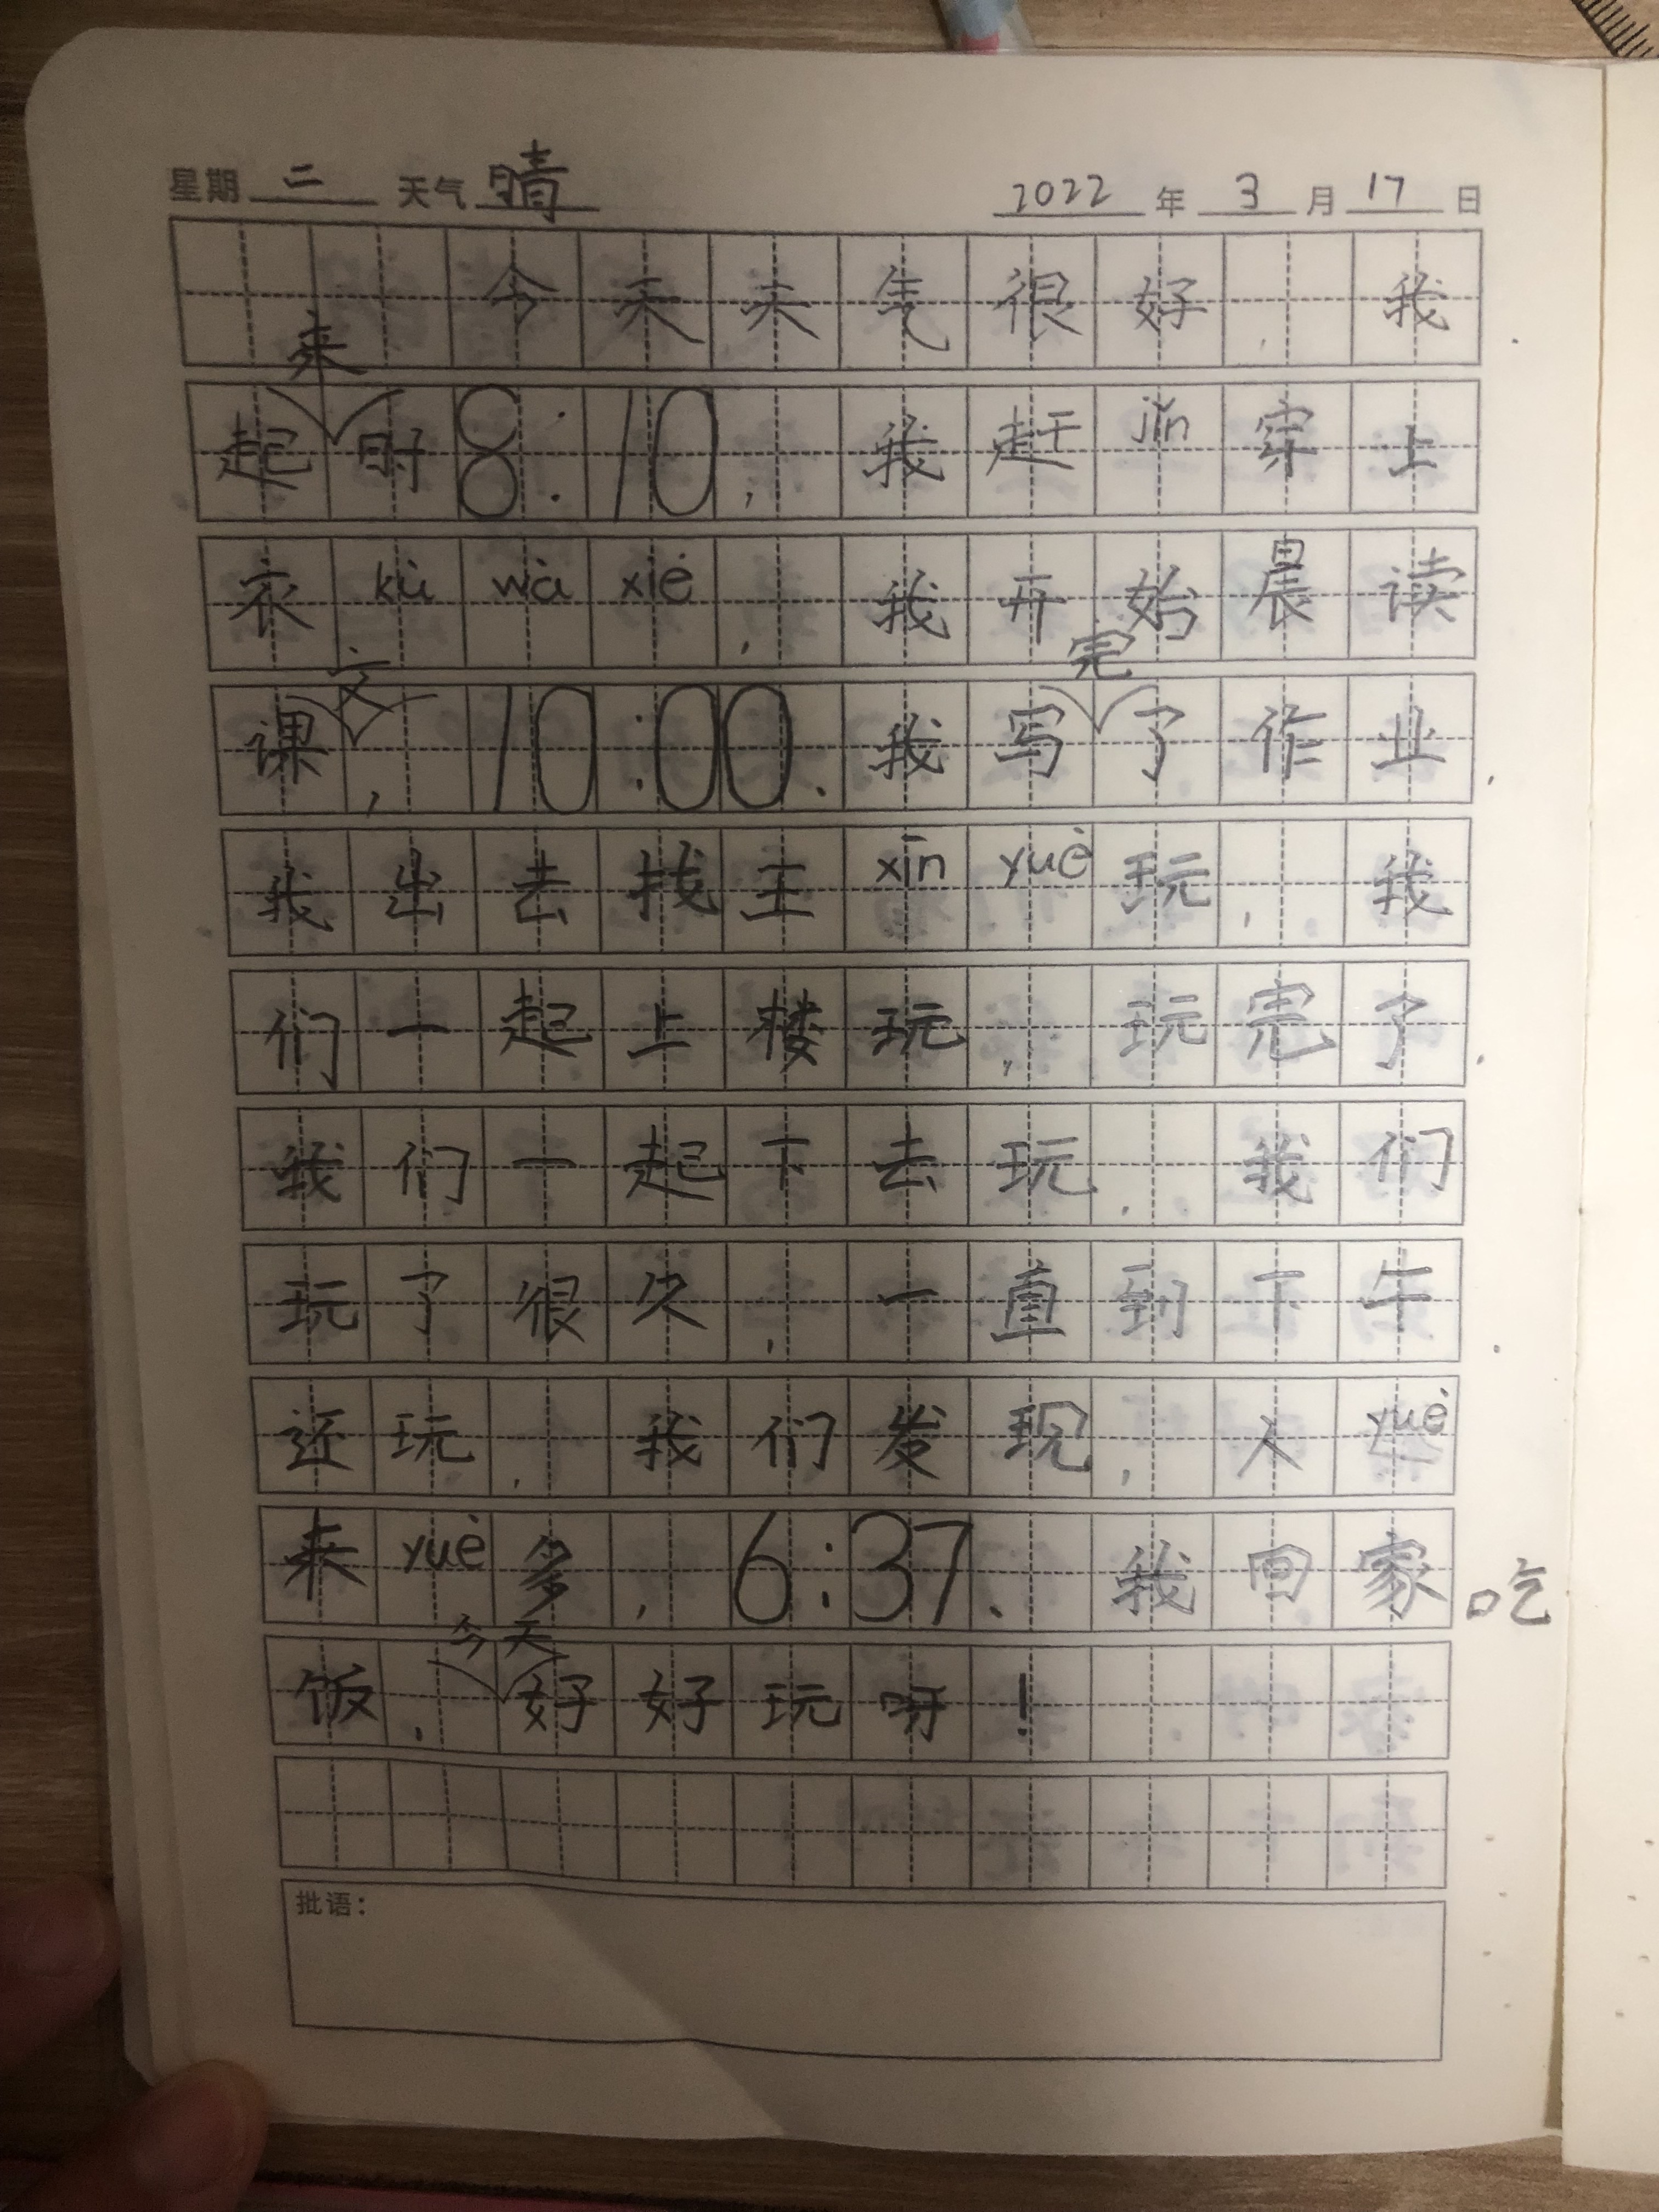 星期 二 天气 晴 2022 年 3 月 17 日
今天天气很好，我
来
起时8:10，我赶jǐn穿上
衣kù wà xié，我开始晨读
文 完
课，10:00.我写了作业，
我出去找王xīn yuè玩，我
们一起上楼玩，玩完了，
我们一起下去玩，我们
玩了很久，一直到下午
还玩，我们发现，人yuè
来yuè多，6:37.我回家吃
今天
饭，好好玩呀！
批语：